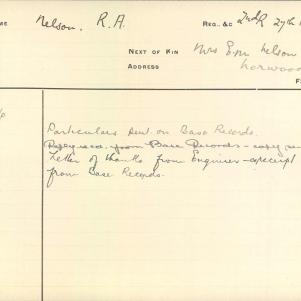 ME Nelson, R. A. REG. &C 2nd R 27th
NEXT OF KIN Mrs E.M. Nelson
ADDRESS Norwood
Particulars sent on Base Records.
Reply recd. from Base Records – copy
Letter of thanks from Enquirer – receipt
from Base Records.